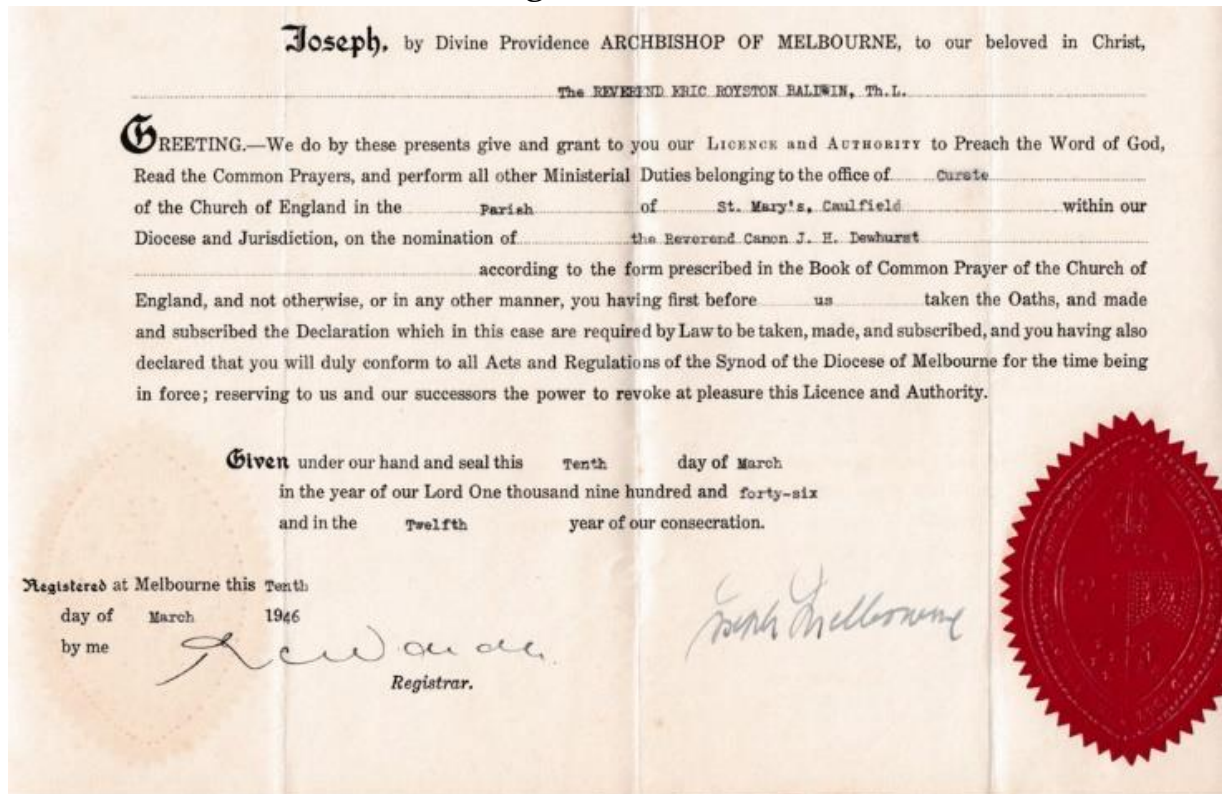 Joseph, by Divine Providence ARCHBISHOP OF MELBOURNE, to our beloved in Christ,
The REVEREND ERIC ROYSTON BALDWIN, Th.L.
GREETING.—We do by these presents give and grant to you our LICENCE and AUTHORITY to Preach the Word of God,
Read the Common Prayers, and perform all other Ministerial Duties belonging to the office of Curate
of the Church of England in the Parish of St. Mary's, Caulfield within our
Diocese and Jurisdiction, on the nomination of the Reverend Canon J. H. Dewhurst
according to the form prescribed in the Book of Common Prayer of the Church of
England, and not otherwise, or in any other manner, you having first before us taken the Oaths, and made
and subscribed the Declaration which in this case are required by Law to be taken, made, and subscribed, and you having also
declared that you will duly conform to all Acts and Regulations of the Synod of the Diocese of Melbourne for the time being
in force; reserving to us and our successors the power to revoke at pleasure this Licence and Authority.
Given under our hand and seal this Tenth day of March
in the year of our Lord One thousand nine hundred and forty-six
and in the Twelfth year of our consecration.
Registered at Melbourne this Tenth
day of March 1946
by me
Joseph Melbourne
Registrar.